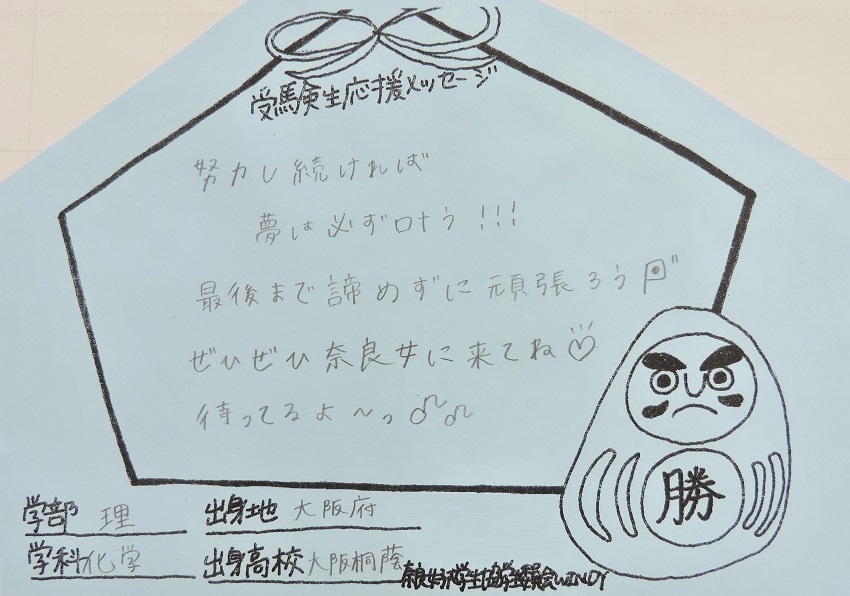 受験生応援メッセージ
努力し続ければ
夢は必ず叶う!!!
最後まで諦めずに頑張ろう
ぜひぜひ奈良女に来てね♡
待ってるよ〜っ♪♫
勝
学部 理 出身地 大阪府
学科 化学 出身高校 大阪桐蔭
WINDY